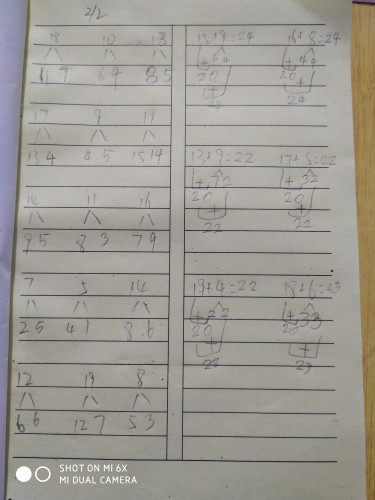 2/2
18 10 13
11 7 6 4 8 5
17 9 19
13 4 4 5 15 14
14 11 16
9 5 8 3 7 9
7 5 14
2 5 4 1 8 6
12 19 8
6 6 12 7 5 3
15+9=24 16+8=24
+ 5 4 + 4 4
20 20
+ +
24 24
13+9=22 17+5=22
+ 7 2 + 3 2
20 20
+ +
22 22
+ 2 2 + 3 3
20 20
+ +
22 23
SHOT ON MI 6X
MI DUAL CAMERA